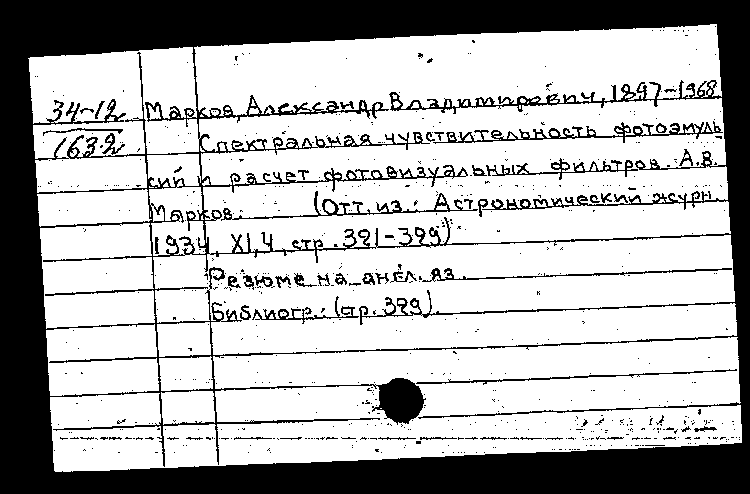 34-12
1632
Марков, Александр Владимирович, 1897-1968
Спектральная чувствительность фотоэмуль
сий и расчет фотовизуальных фильтров. А.В.
Марков. (Отт. из: Астрономический журн.
1934, XI, 4, стр. 321-329)
Резюме на англ. яз.
Библиогр.: (стр. 329).